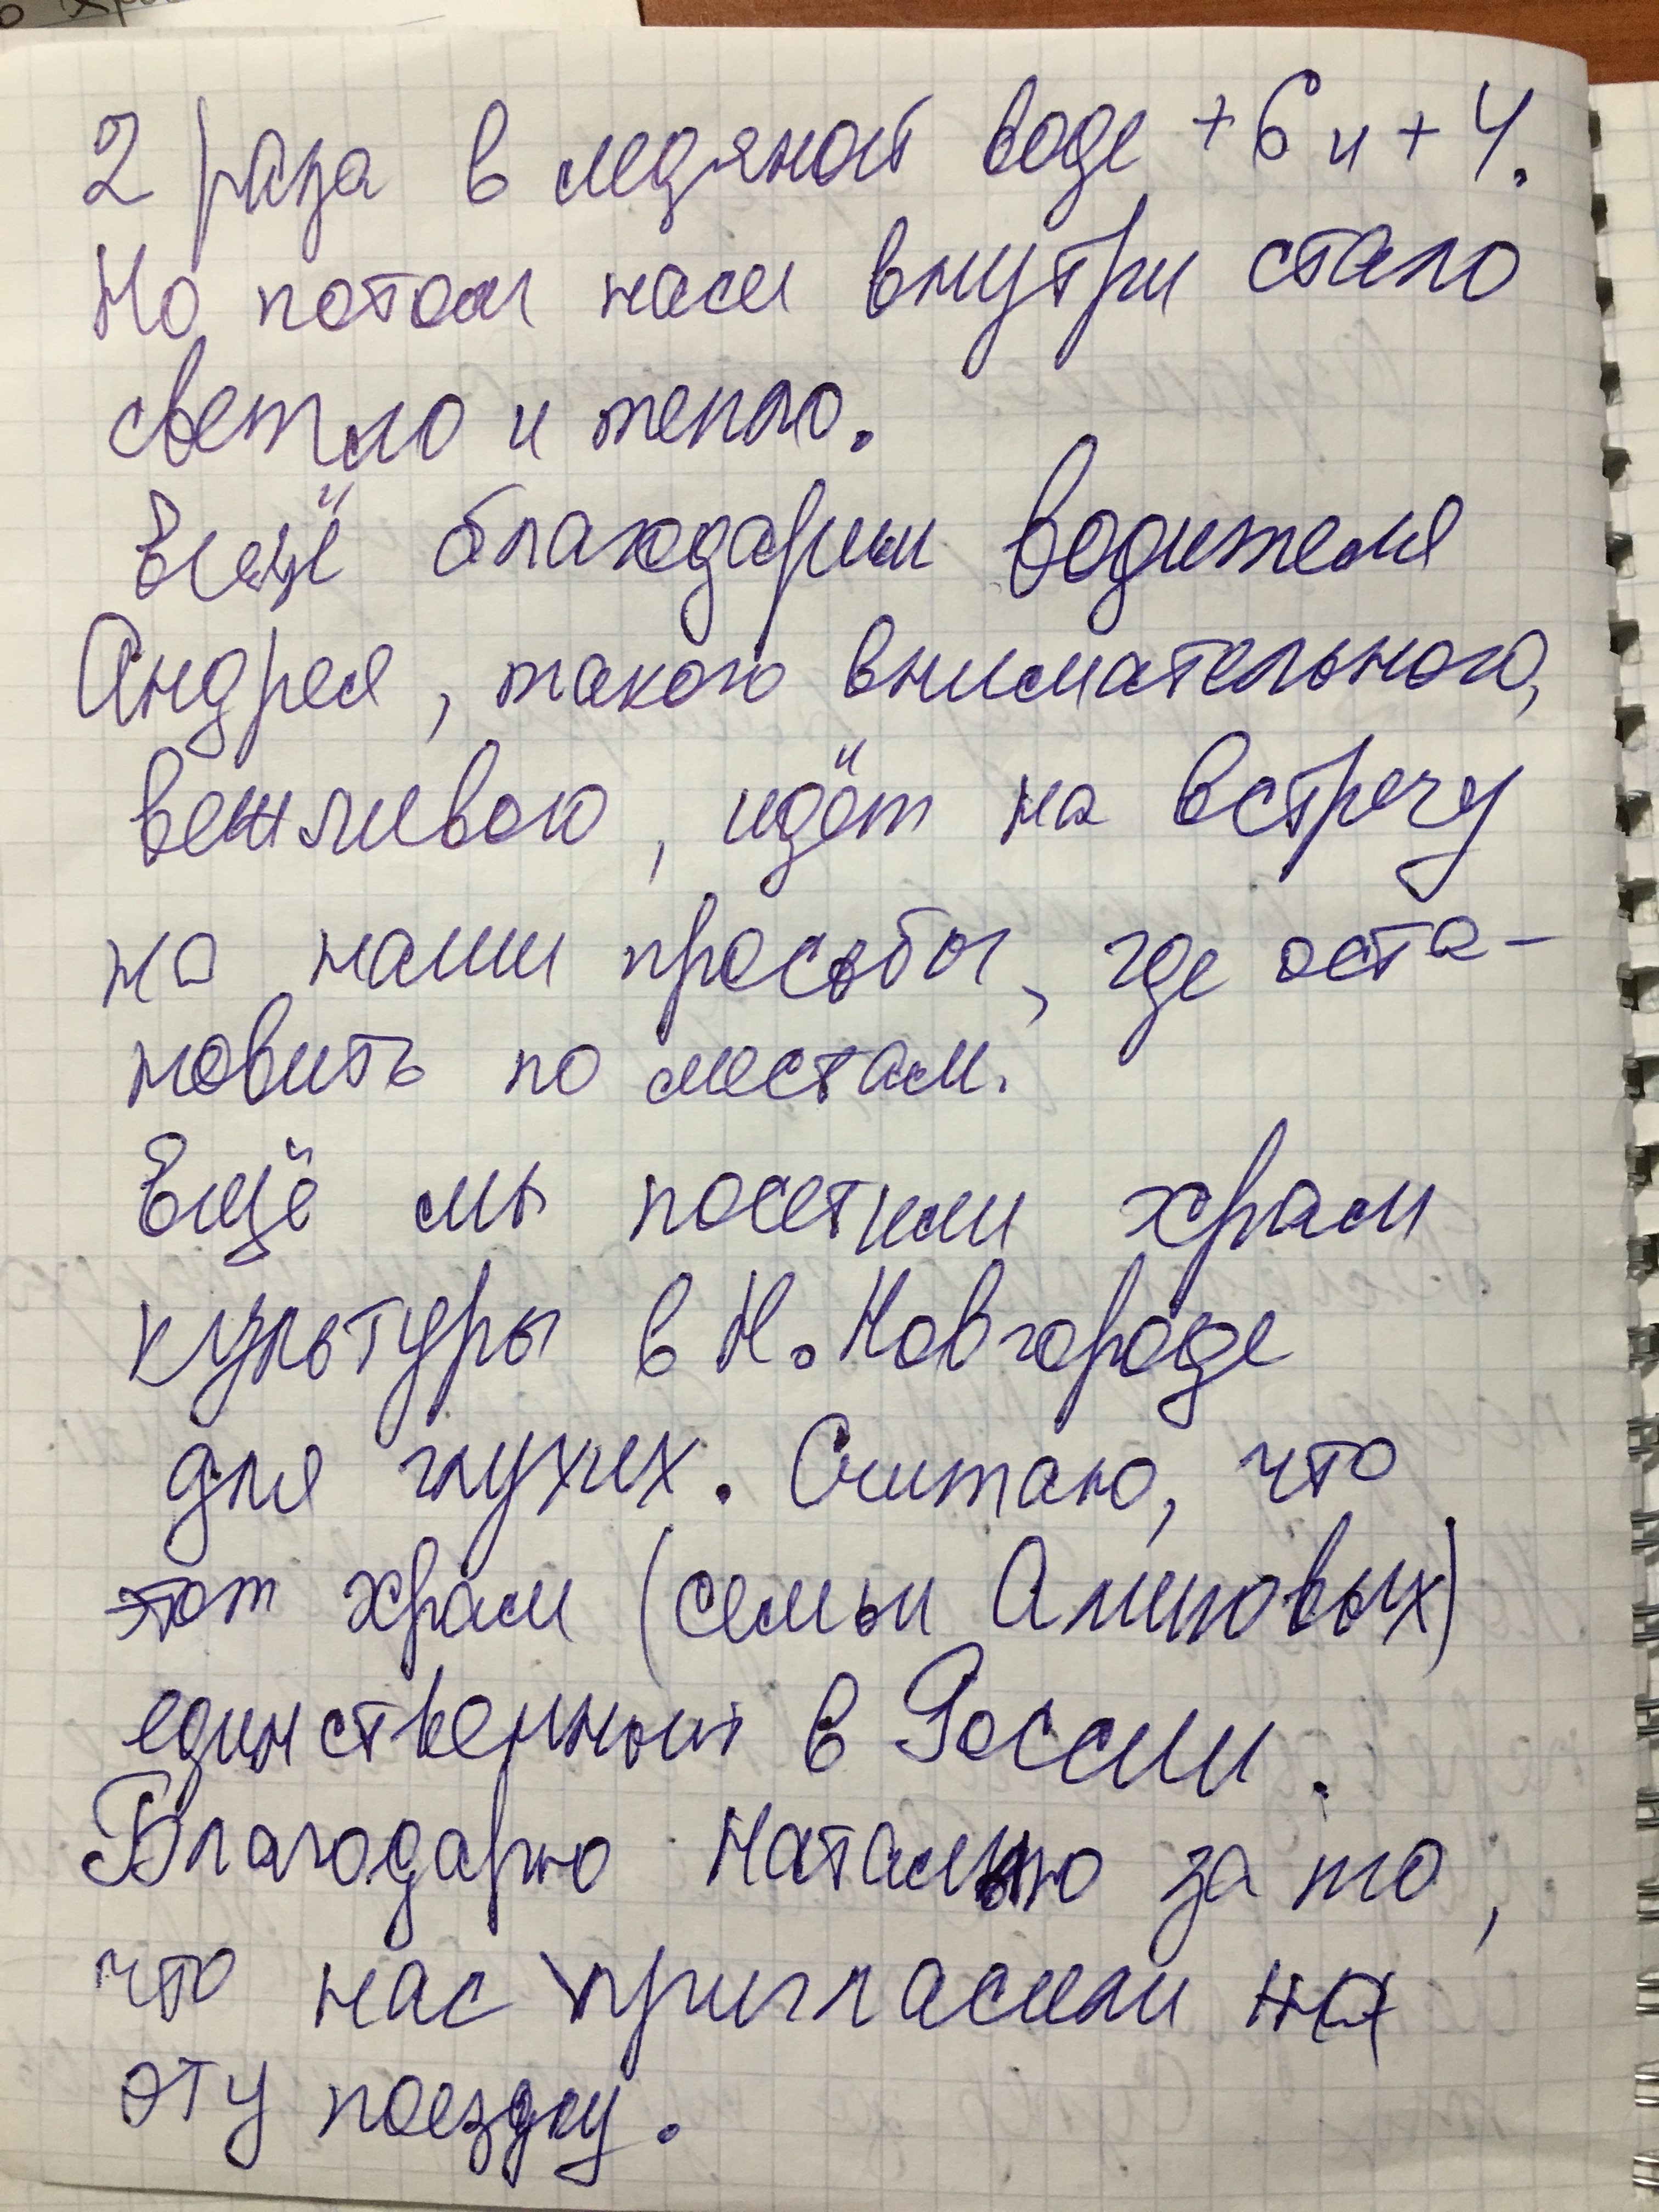 2 раза в ледяной воде +6 и +4.
Но потом нам внутри стало
светло и тепло.
Ещё благодарим водителя
Андрея, такого внимательного,
вежливого, идёт на встречу
на наши просьбы, где оста-
новить по местам.
Ещё мы посетили храм
культуры в Н. Новгороде
для глухих. Считаю, что
этот храм (семьи Аминовых)
единственный в России.
Благодарю Наталью за то,
что нас пригласили на
эту поездку.